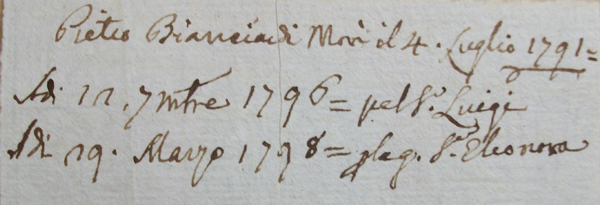 Pietro Bianciardi Morì il 4. Luglio 1791=
Adì 12. 7mbre 1796= pel S.r Luigi
Adì 29. Marzo 1798= pla g. S.ra Eleonora